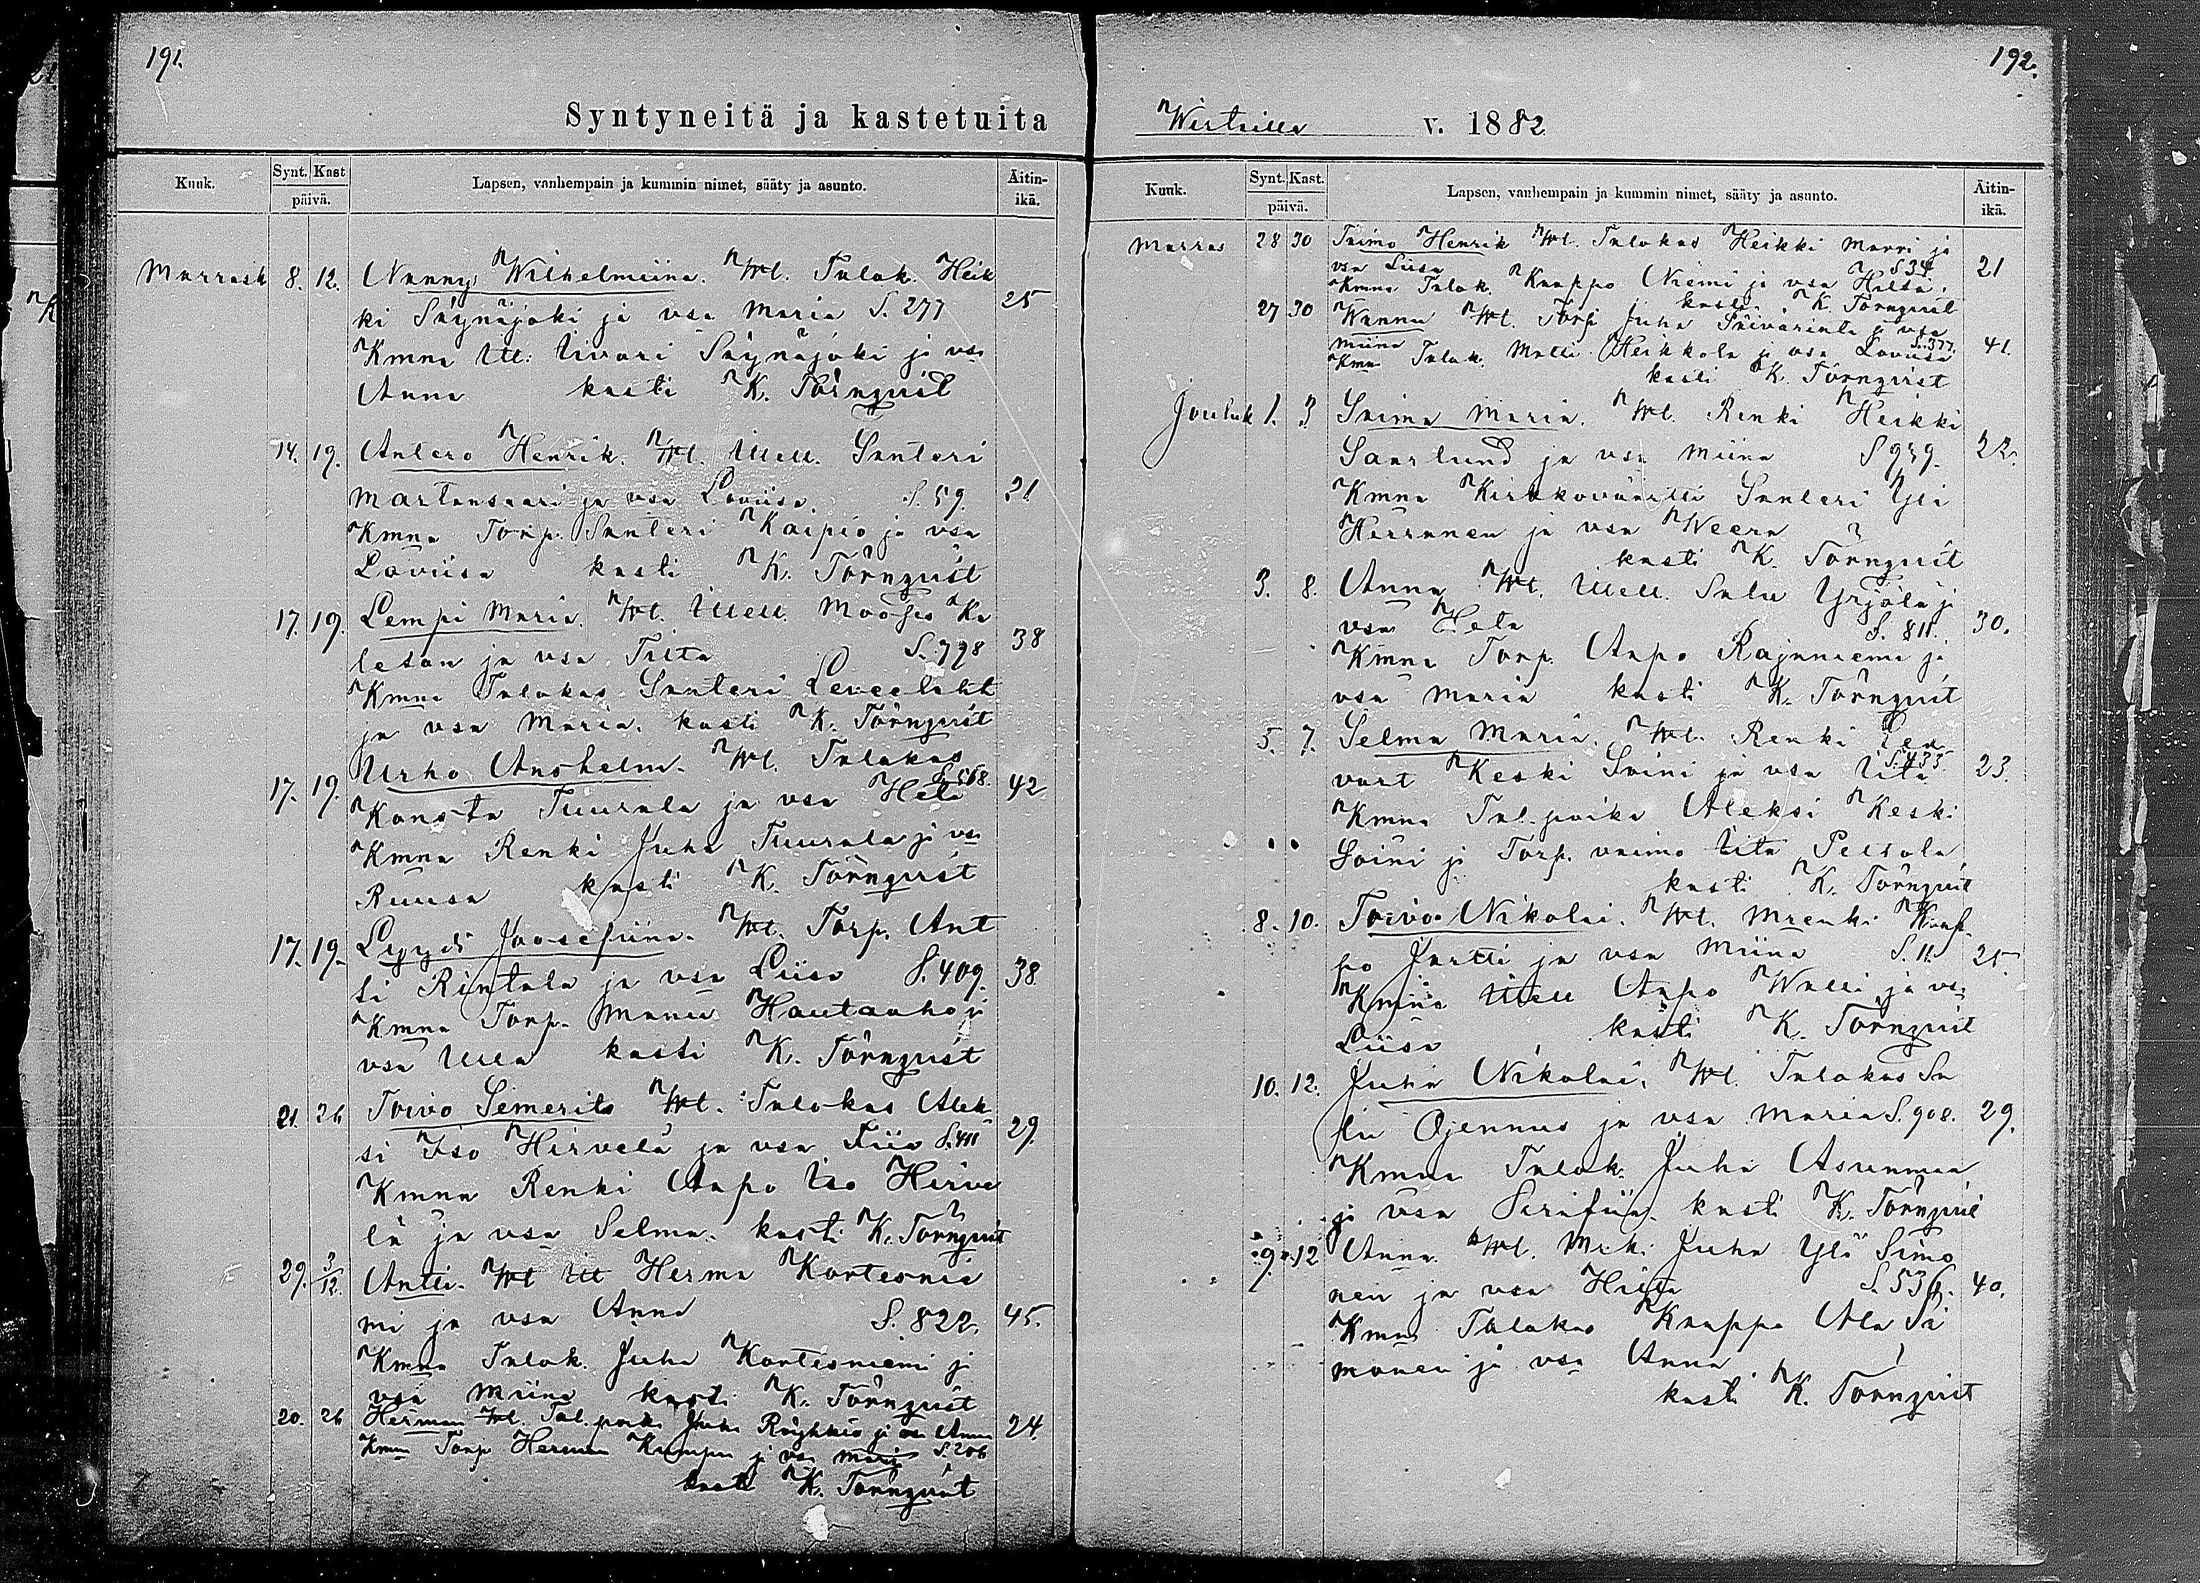 191.
Syntyneitä ja kastetuita
Kuuk.
Synt. Kast
päivä.
Lapsen, vanhempain ja kummin nimet, sääty ja asunto.
Äitin-
ikä.
Marrask 8. 12. Nanny Wilhelmiina. Wl. Talok. Heik
ki Säynäjoki ja vsa Maria S. 277 25
Kmna Itl. Iivari Säynäjoki ja vsa
Anna kasti K. Törnqvist
14. 19. Antero Henrik. Wl. Itell. Santeri
Martansaari ja vsa Loviisa S. 59. 21
Kmna Torp. Santeri Kaipio ja vsa
Loviisa kasti K. Törnqvist
17. 19. Lempi Maria. Wl. Itell. Mooses Ka
leton ja vsa Fiita S. 798 38
Kmna Talokas Santeri Leveelaht
ja vsa Maria. kasti K. Törnqvist
17. 19. Urho Anshelm. Wl. Talokas
Konsta Tuurala ja vsa Heta S. 568. 42
Kmna Renki Juha Tuurala ja vsa
Ruusa kasti K. Törnqvist
17. 19. Lyydi Joosefiina. Wl. Torp. Ant
ti Rintala ja vsa Liisa S. 409. 38
Kmna Torp. Manu Hautaaho ja
vsa Ulla kasti K. Törnqvist
21. 26 Toivo Semerits Wl. Talokas Alek
si Iso Hirvelä ja vsa Fiia S. 411 29.
Kmna Renki Aapo Iso Hirve
lä ja vsa Selma. kasti K. Törnqvist
29. 3/12. Antti. Wl Itl Herma Kortesnie
mi ja vsa Anna S. 822. 45.
Kmna Talok. Juha Kortesniemi ja
vsa Miina kasti K. Törnqvist
20. 26 Herman Wl. Tal. poika Juha Röyhkiö ja vsa Anna 24.
Kmna Torp Herman Kumpu ja vsa Maria S. 206
kasti K. Törnqvist
192.
Wirtailla v. 1882
Kuuk.
Synt. Kast.
päivä.
Lapsen, vanhempain ja kummin nimet, sääty ja asunto.
Äitin-
ikä.
Marras 28 30 Taimo Henrik Wl. Talokas Heikki Marri ja
vsa Liisa S 34 21
Kmna Talok. Kaappo Niemi ja vsa Hilta.
kasti K. Törnqvist
27 30 Wanna Wl. Torp Juha Päivärinta ja vsa
Miina S. 377. 41.
Kmna Talok. Matti Heikkola ja vsa Loviisa
kasti K. Törnqvist
Jouluk 1. 3 Saima Maria. Wl. Renki Heikki
Saarlund ja vsa Miina S 959. 22.
Kmna Kirkkoväärtti Santeri Yli
Herranen ja vsa Weera
kasti K. Törnqvist
3. 8. Anna Wl. Itell. Salu Yrjölä ja
vsa Heta S. 811. 30.
Kmna Torp. Aapo Rajaniemi ja
vsa Maria kasti K. Törnqvist
5. 7. Selma Maria. Wl. Renki Ed
vart Keski Soini ja vsa Iita S. 433. 23.
Kmna Tal. poika Aleksi Keski
Soini ja Torp. vaimo Iita Peltola
kasti K. Törnqvist
8. 10. Toivo Nikolai. Wl. Mrenki Kaap
po Jartti ja vsa Miina S. 11. 25.
Kmna Itell Aapo Walli ja vsa
Liisa kasti K. Törnqvist
10. 12. Juha Nikolai. Wl. Talokas Sa
lu Ojennus ja vsa Maria S. 908. 29.
Kmna Talok. Juha Asunmaa
ja vsa Serafiia. kasti K. Törnqvist
9. 12 Anna Wl. Mrki Juha Ylä Simo
nen ja vsa Heeta S. 536. 40.
Kmna Talokas Kaappo Ala Si
monen ja vsa Anna
kasti K. Törnqvist